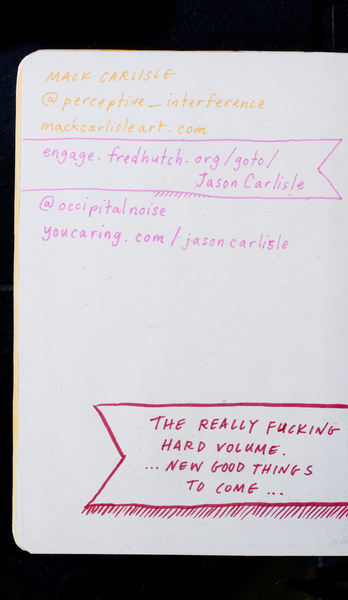 MACK CARLISLE
@perceptive_interference
mackcarlisleart.com
engage.fredhutch.org/goto/
Jason Carlisle
@occipitalnoise
youcaring.com/jasoncarlisle
THE REALLY FUCKING
HARD VOLUME.
... NEW GOOD THINGS
TO COME ...